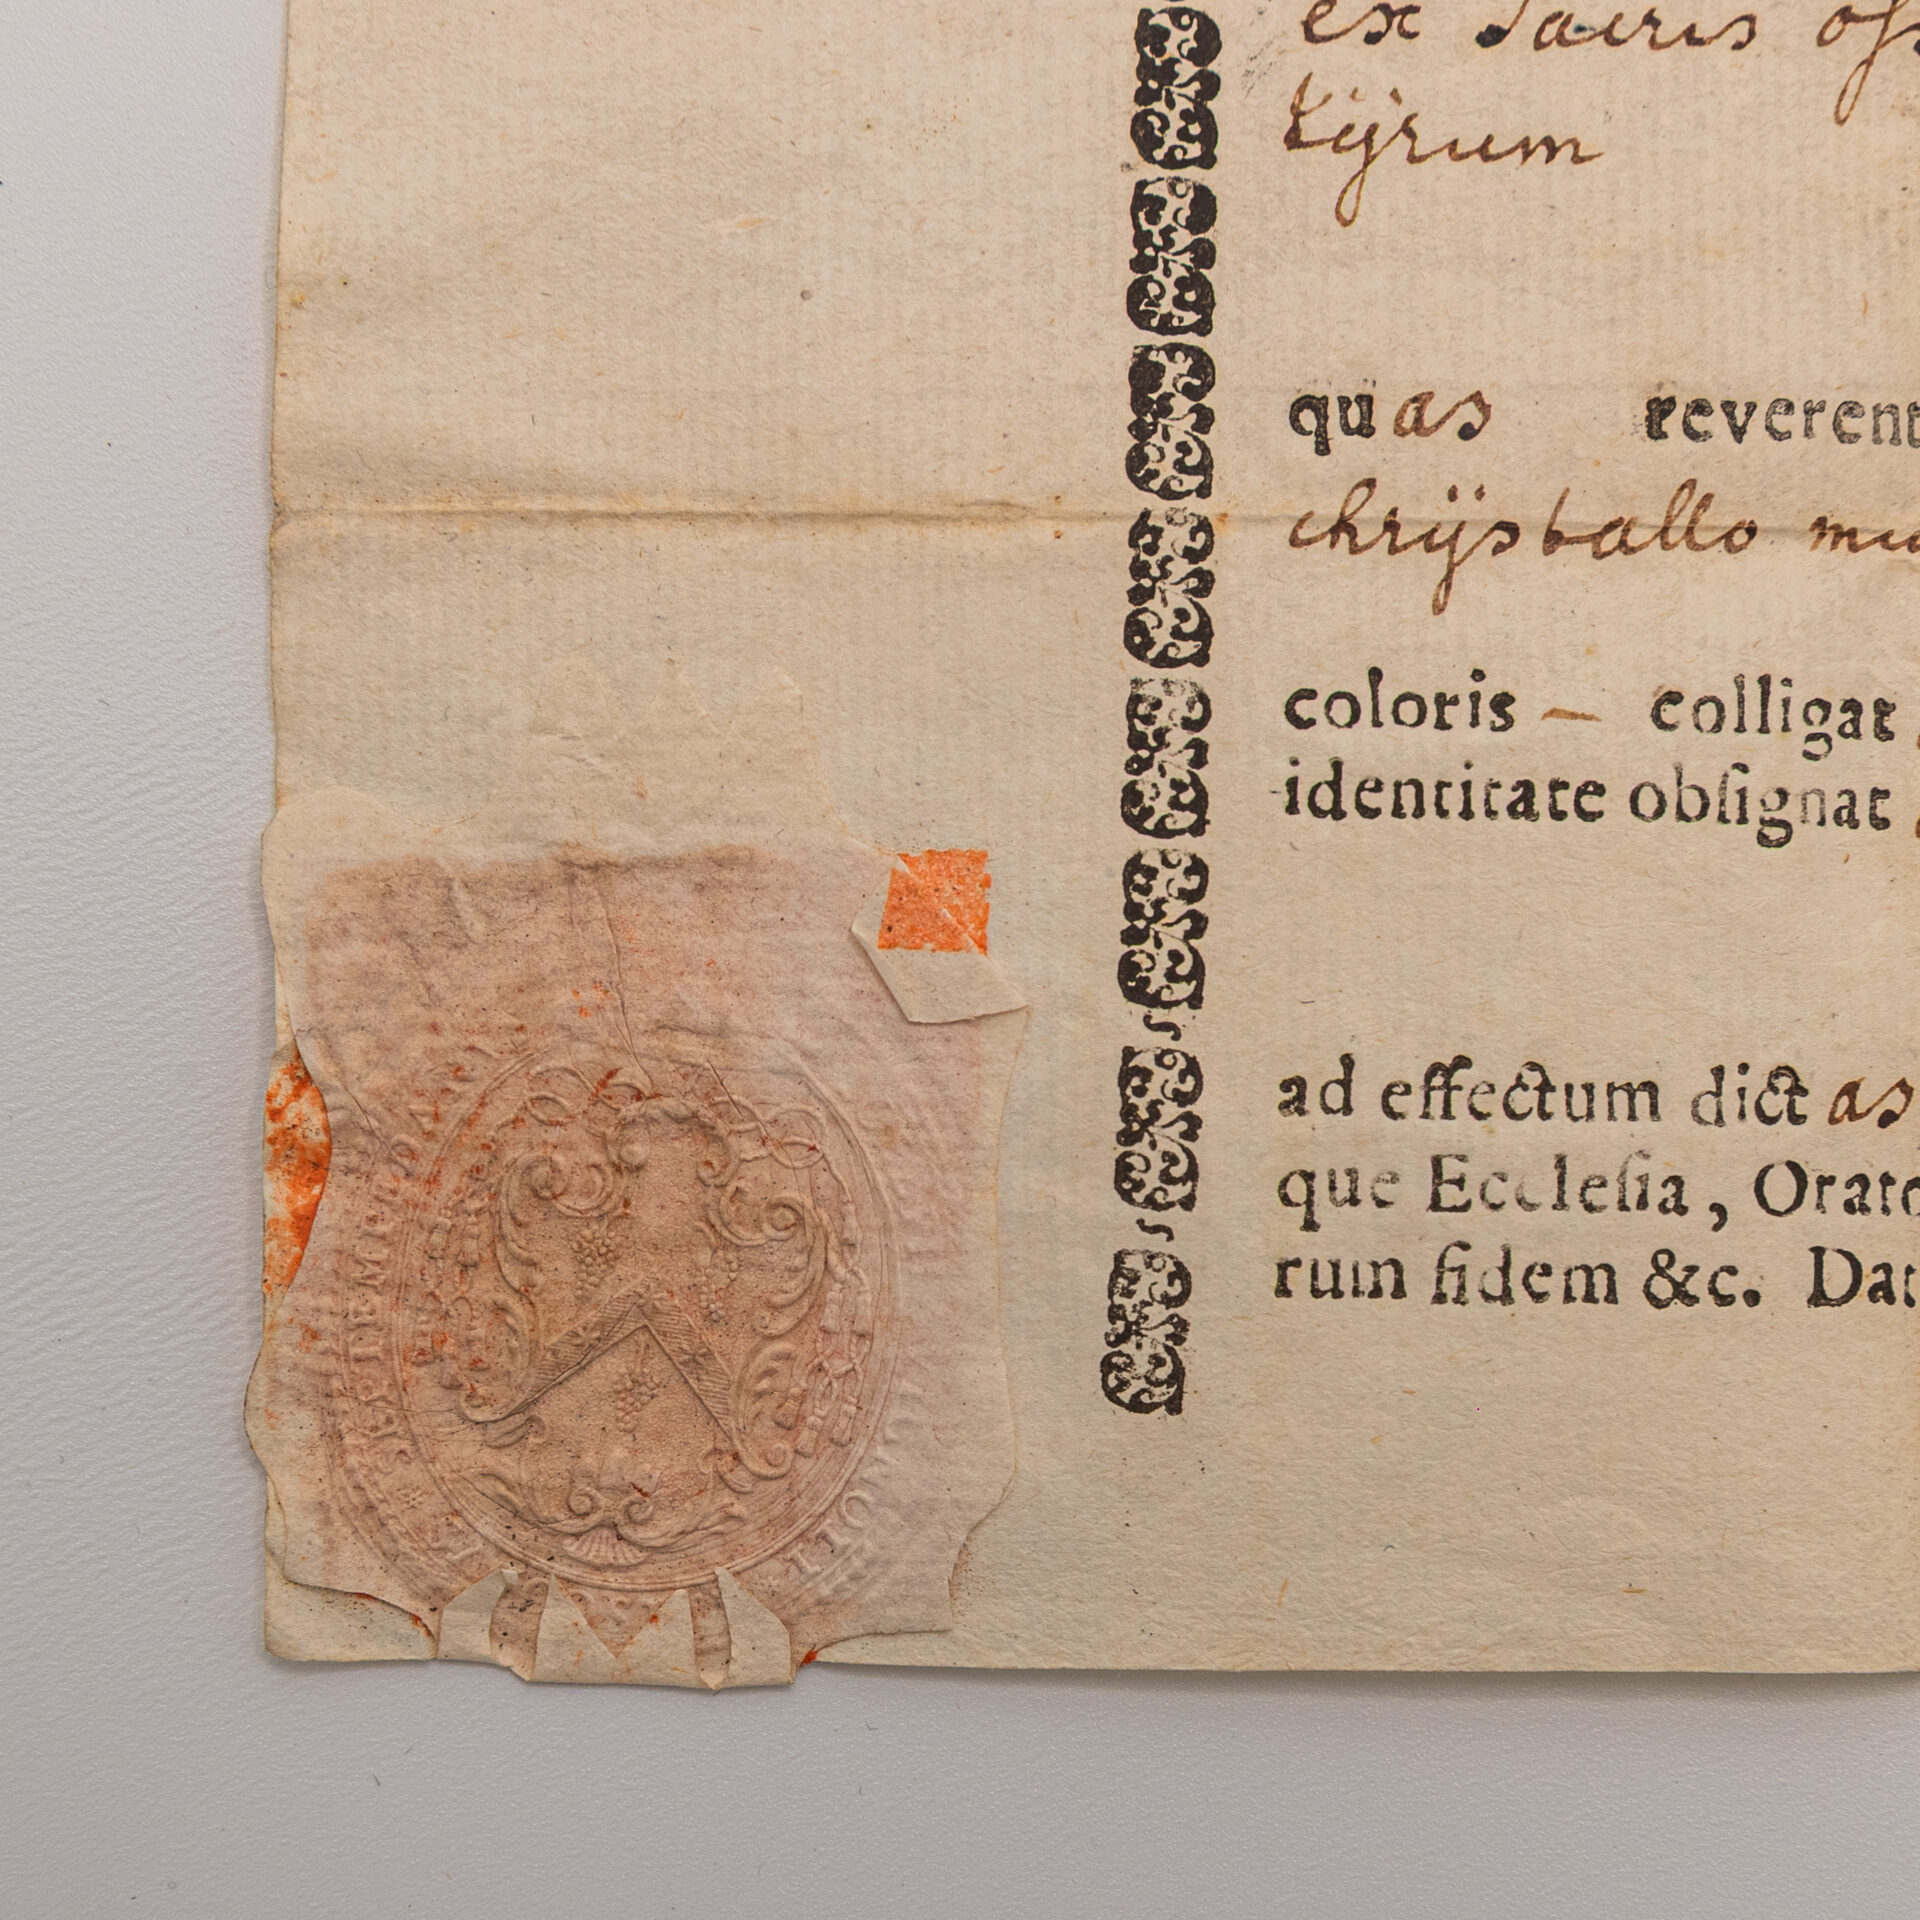 ex Sacris
tÿrum
quas reverent
chrÿstallo
coloris — colligat
identitate obſignat
ad effectum dictas
que Eccleſia, Orato
rum fidem &c. Dat